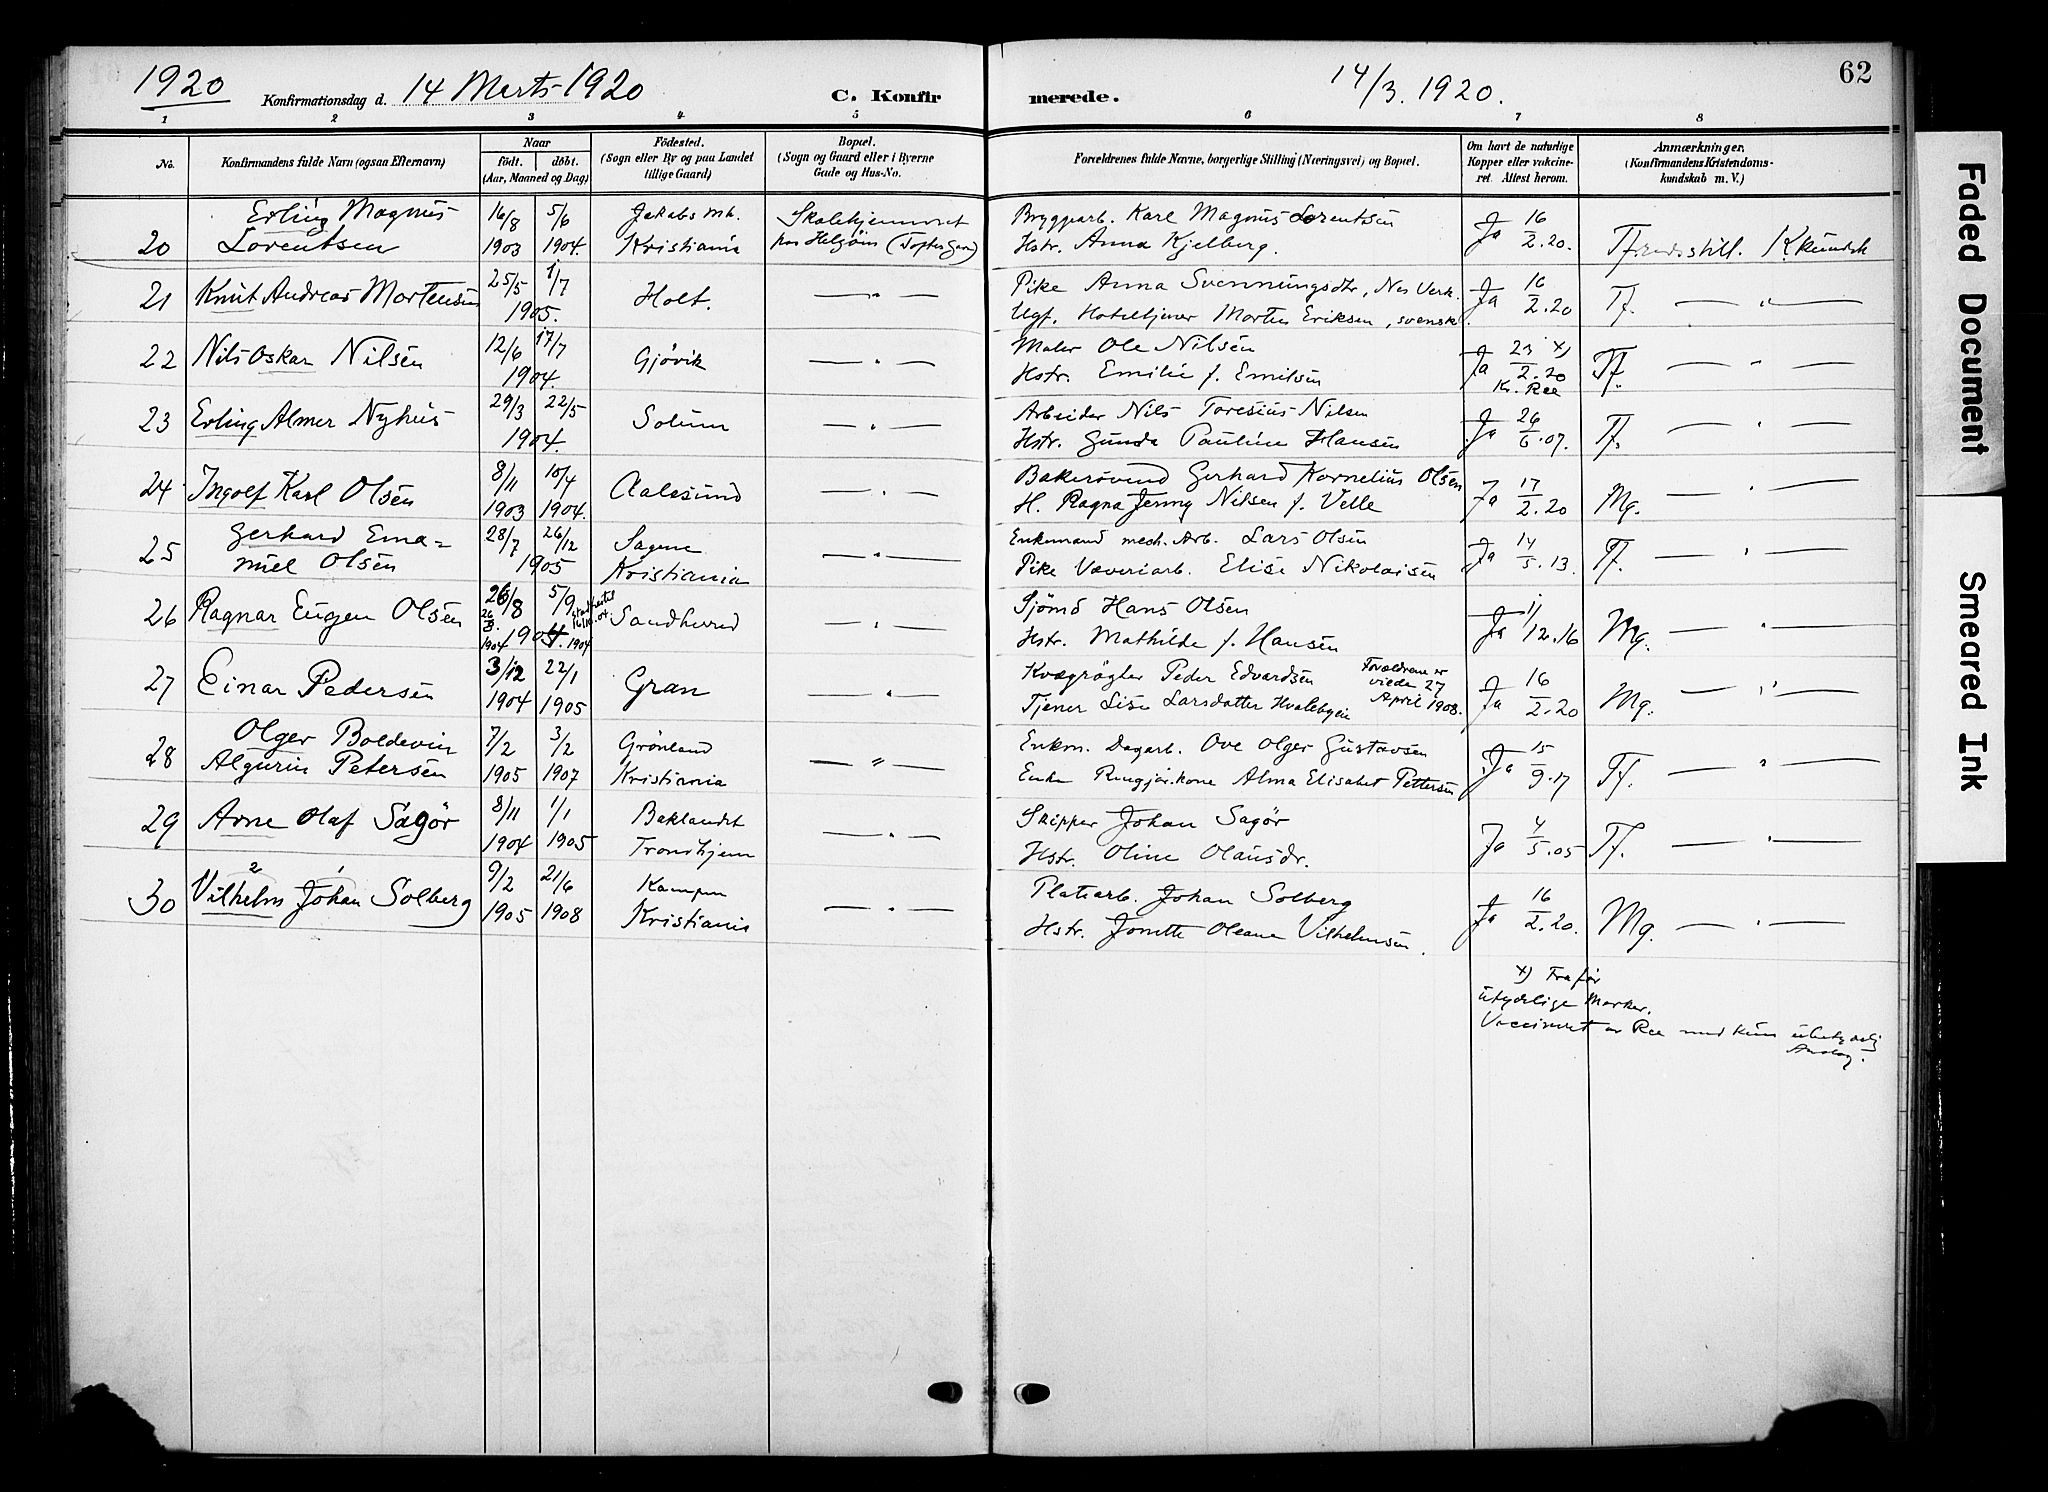 1920 Konfirmationsdag d. 14 Marts 1920 C. Konfirmerede. 14/3. 1920. 62
1 2 3 4 5 6 7 8
No. Konfirmandens fulde Navn (ogsaa Efternavn) Naar födt. döbt. (Aar, Maaned og Dag) Födested. (Sogn eller By og paa Landet tillige Gaard) Bopæl. (Sogn og Gaard eller i Byerne Gade og Hus-No. Forældrenes fulde Navne, borgerlige Stilling (Næringsvei) og Bopæl. Om havt de naturlige Kopper eller vakcineret. Attest herom. Anmærkninger. (Konfirmandens Kristendomskundskab m. V.)
Erling Magnus 16/8 5/6 Jakobs mh. Skolehjemmet Bryggarb. Karl Magnus Lorentsen Ja 16
20 Lorentsen 1903 1904. Kristiania paa Helgöen (Toftes Gave) Hstr. Anna Kjelberg. 2.20. Tfredsstill. Kkundsk
21 Knut Andreas Mortensen 25/5 1/7 Holt. — " — Pike Anna Svennungsdtr, Nes Verk. Ja 16 Tf. — " —
1905. Ugf. Hoteltjener Morten Eriksen, svensk. 2.20
22 Nils Oskar Nilsen 12/6 17/7 Gjövik — " — Maler Ole Nilsen Ja 23 x) Tf. — " —
1904. Hstr. Emilie f. Emilsen 2.20
Kr. Ree
23 Erling Almer Nyhus 29/3 22/5 Solum — " — Arbeider Nils Toresius Nilsen Ja 26 Tf. — " —
1904. Hstr. Gunda Pauline Hansen 6.07.
24 Ingolf Karl Olsen 8/11 10/4 Aalesund — " — Bakersvend Gerhard Kornelius Olsen Ja 17 Mg. — " —
1903 1904. H. Ragna Jenny Nilsen f. Velle 2.20
25 Gerhard Ema= 28/7 26/12 Sagene — " — Enkemand mech. Arb. Lars Olsen Ja 14 Tf. — " —
nuel Olsen 1905 Kristiania Pike Væveriarb. Elise Nikolaisen 5.13.
26 Ragnar Eugen Olsen 26/8 5/9 Sandherred — " — Sjömd Hans Olsen Ja 1/12.16 Mg. — " —
26/8. 1904 1904. 1904 Hstr. Mathilde f. Hansen
27 Einar Pedersen 3/12 22/1 Gran — " — Kvægrögter Peder Edvardsen Forældrene er viede 27 April 1908. Ja 16 Mg. — " —
1904 1905 Tjener Lise Larsdatter Hvalebyeie 2.20
28 Olger Boldevin 7/2 3/2 Grönland — " — Enkm. Dagarb. Ove Olger Gustavsen Ja 15 Tf. — " —
Algurin Petersen 1905 1907 Kristiania Enke Rengjör.kone Alma Elisabet Pettersen 9.17
29 Arne Olaf Sagör 8/11 1/1 Baklandet — " — Skipper Johan Sagör Ja 4 Tf. — " —
1904 1905 Trondhjem Hstr. Oline Olausdr. 5.05
2 1
30 Vilhelm Johan Solberg 9/2 21/6 Kampen — " — Platearb. Johan Solberg Ja 16 Mg. — " —
1905 1908 Kristiania Hstr. Jonette Oleane Vilhelmsen. 2.20.
x) Fra för
utydelige Merker.
Vaccineret av Ree med kun ubetydelig
Anslag.
Faded Document
Smeared Ink